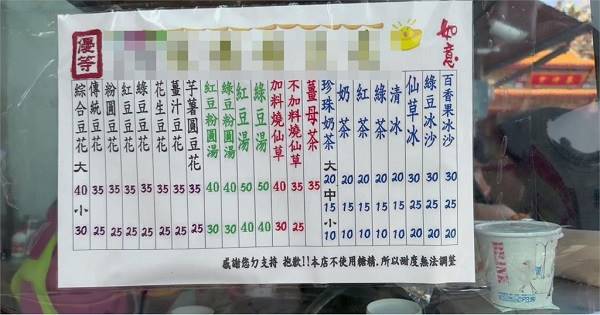 優等
如意
綜合豆花 大 40 小 30
傳統豆花 35 25
粉圓豆花 35 25
紅豆豆花 35 25
綠豆豆花 35 25
花生豆花 35 25
薑汁豆花 35 25
芋薯圓豆花 35 25
紅豆粉圓湯 40
綠豆粉圓湯 40
紅豆湯 50 40
綠豆湯 50 40
加料燒仙草 40 30
不加料燒仙草 35 25
薑母茶 35
珍珠奶茶 大 20 中 15 小 10
奶茶 20 15 10
紅茶 20 15 10
綠茶 20 15 10
清冰 20 15 10
仙草冰 30 20
綠豆冰沙 30 20
百香果冰沙 30 25
感謝您ㄉ支持 抱歉!!本店不使用糖精.所以甜度無法調整